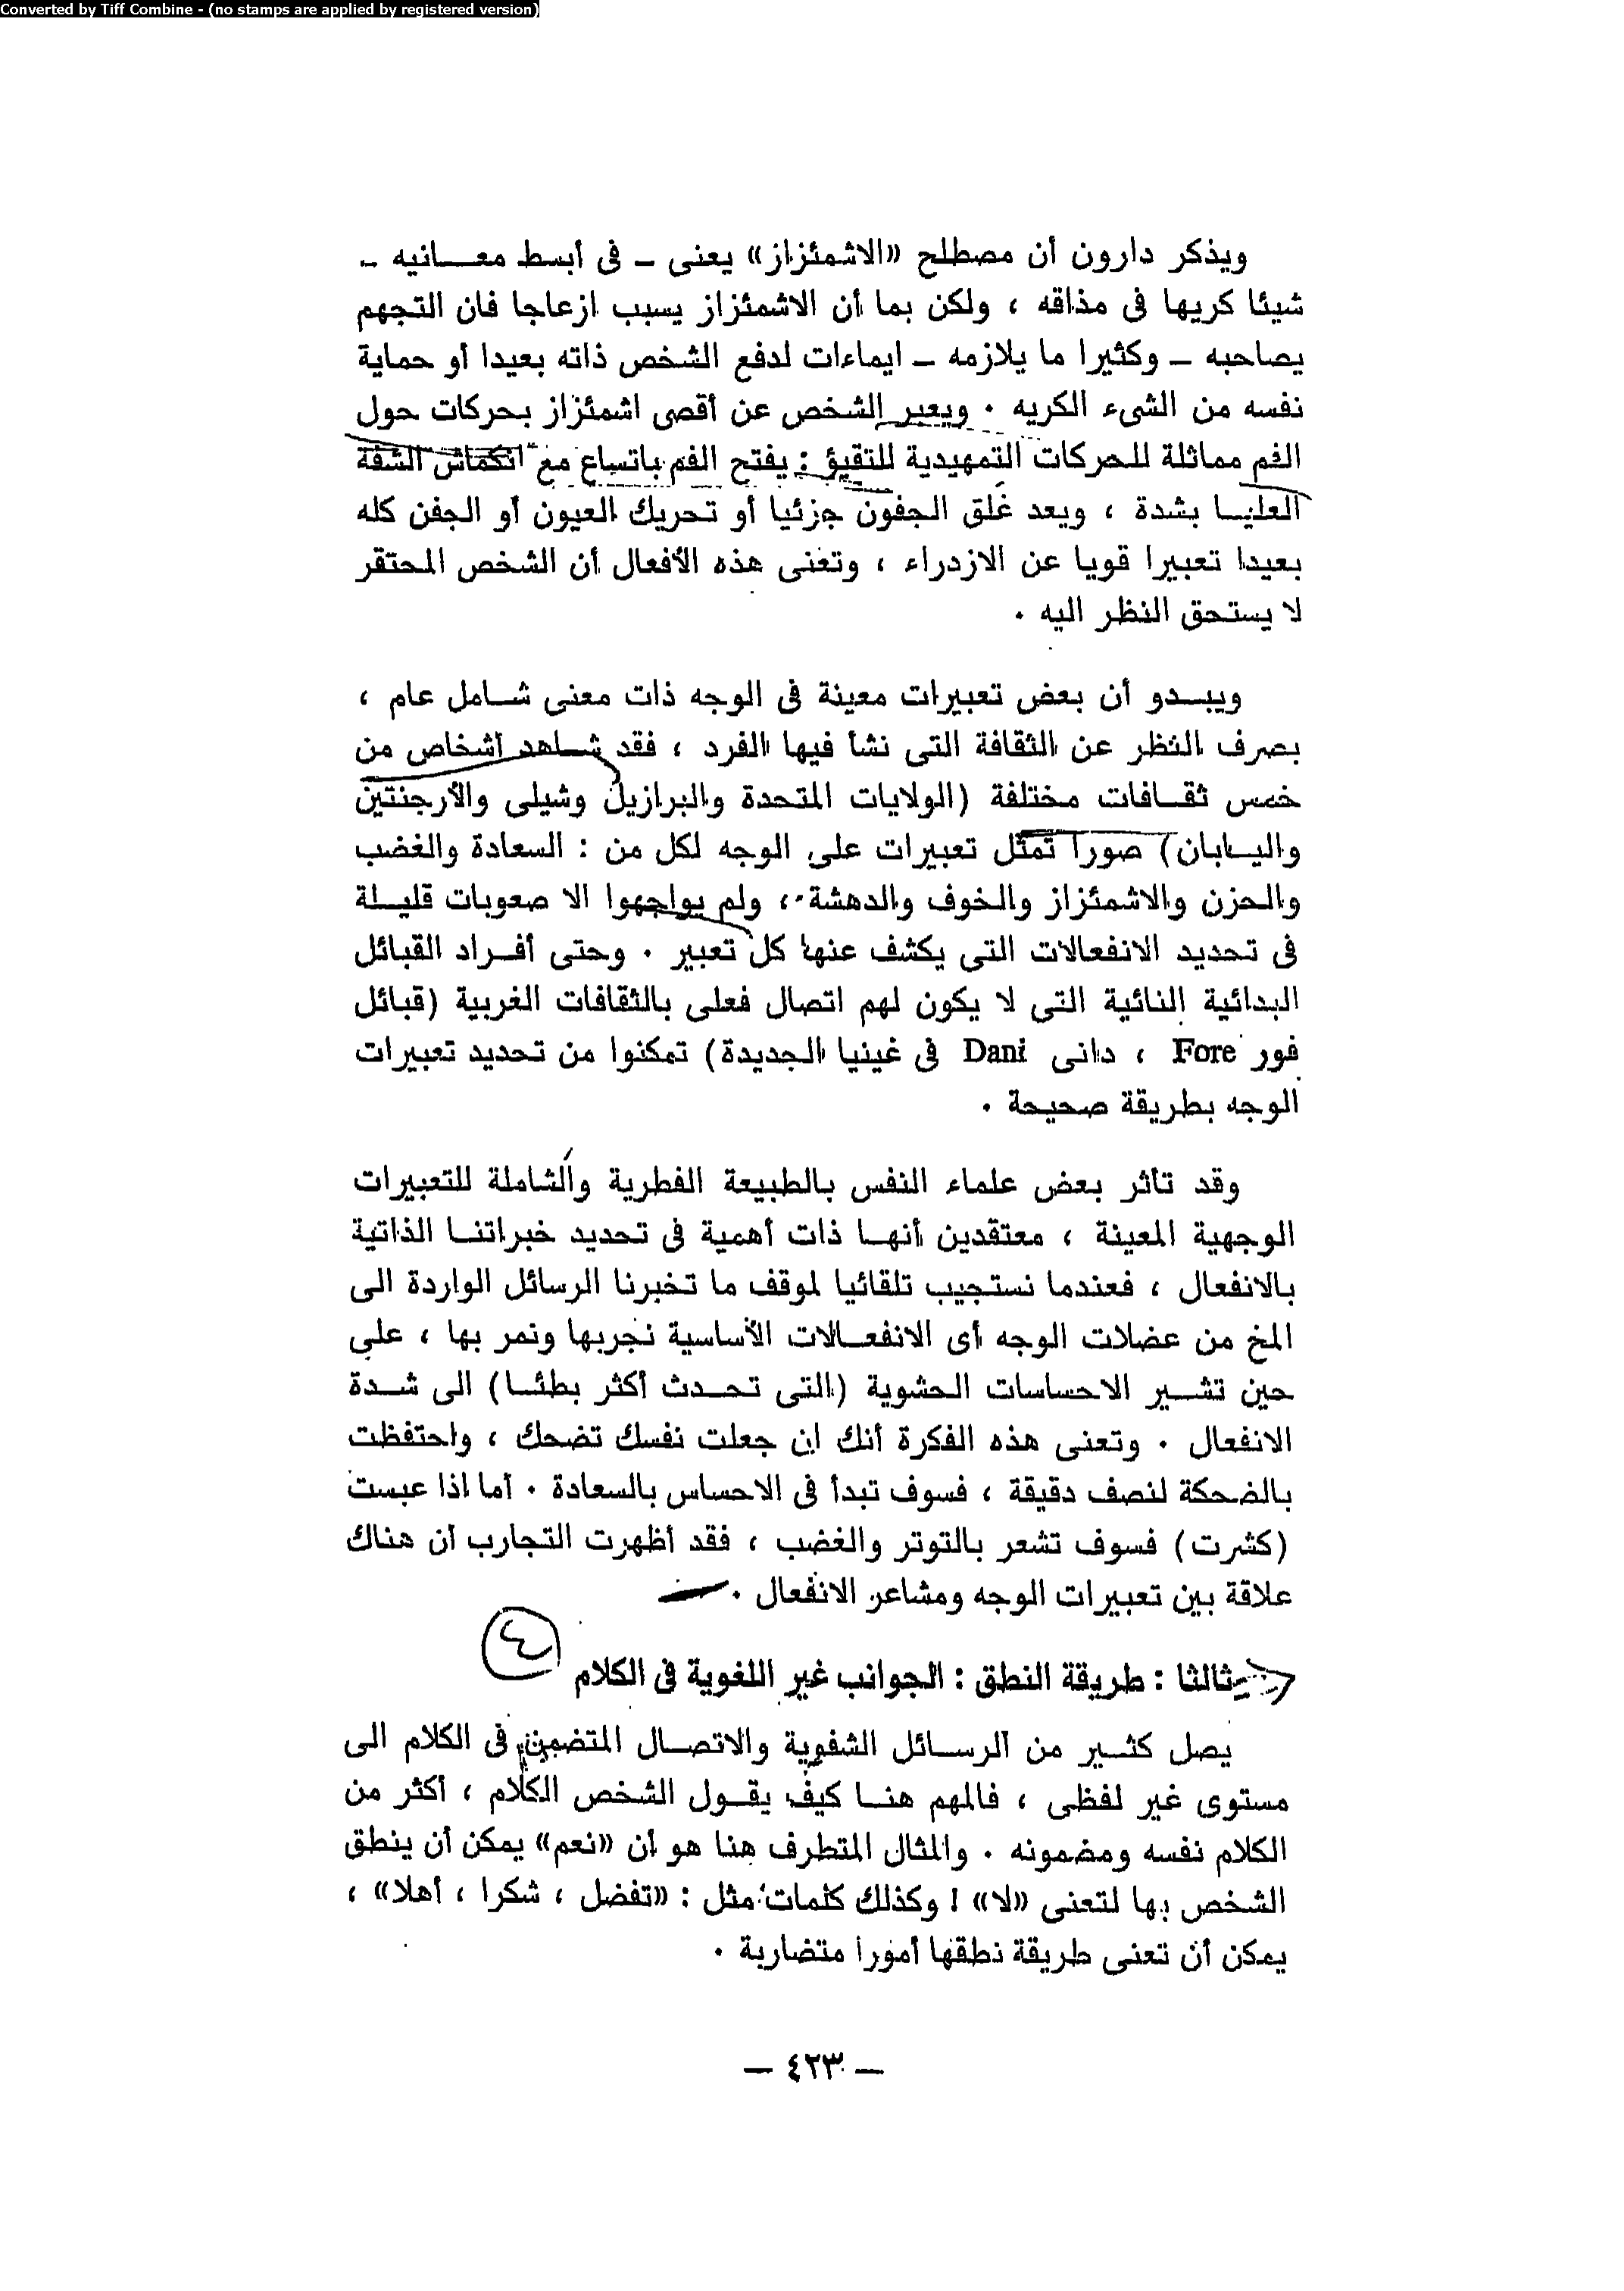 Converted by Tiff Combine - (no stamps are applied by registered version)
ويذكر دارون أن مصطلح «الاشمئزاز» يعنى ــ فى أبسط معـــانيه ــ
شيئا كريها فى مذاقه ، ولكن بما أن الاشمئزاز يسبب ازعاجا فان التجهم
يصاحبه ــ وكثيرا ما يلازمه ــ ايماءات لدفع الشخص ذاته بعيدا أو حماية
نفسه من الشىء الكريه . ويعبر الشخص عن أقصى اشمئزاز بحركات حول
الفم مماثلة للحركات التمهيدية للتقيؤ : يفتح الفم باتساع مع انكماش الشفة
العليـا بشدة ، ويعد غلق الجفون جزئيا أو تحريك العيون أو الجفن كله
بعيدا تعبيرا قويا عن الازدراء ، وتعنى هذه الأفعال أن الشخص المحتقر
لا يستحق النظر اليه .
ويبـدو أن بعض تعبيرات معينة فى الوجه ذات معنى شـامل عام ،
بصرف النظر عن الثقافة التى نشأ فيها الفرد ، فقد شـاهد أشخاص من
خمس ثقـافات مختلفة (الولايات المتحدة والبرازيل وشيلى والأرجنتين
واليـابان) صورا تمثل تعبيرات على الوجه لكل من : السعادة والغضب
والحزن والاشمئزاز والخوف والدهشة ، ولم يواجهوا الا صعوبات قليـلة
فى تحديد الانفعالات التى يكشف عنها كل تعبير . وحتى أفـراد القبائل
البدائية النائية التى لا يكون لهم اتصال فعلى بالثقافات الغربية (قبائل
فور Fore ، دانى Dani فى غينيا الجديدة) تمكنوا من تحديد تعبيرات
الوجه بطريقة صحيحة .
وقد تأثر بعض علماء النفس بالطبيعة الفطرية والشاملة للتعبيرات
الوجهية المعينة ، معتقدين أنهـا ذات أهمية فى تحديد خبراتنـا الذاتية
بالانفعال ، فعندما نستجيب تلقائيا لموقف ما تخبرنا الرسائل الواردة الى
المخ من عضلات الوجه أى الانفعـالات الأساسية نجربها ونمر بها ، على
حين تشـير الاحساسات الحشوية (التى تحـدث أكثر بطئـا) الى شـدة
الانفعال . وتعنى هذه الفكرة أنك ان جعلت نفسك تضحك ، واحتفظت
بالضحكة لنصف دقيقة ، فسوف تبدأ فى الاحساس بالسعادة . أما اذا عبست
(كشرت) فسوف تشعر بالتوتر والغضب ، فقد أظهرت التجارب أن هناك
علاقة بين تعبيرات الوجه ومشاعر الانفعال .
٤
ثالثا : طريقة النطق : الجوانب غير اللغوية فى الكلام
يصل كثـير من الرسـائل الشفوية والاتصـال المتضمن فى الكلام الى
مستوى غير لفظى ، فالمهم هنـا كيف يقـول الشخص الكلام ، أكثر من
الكلام نفسه ومضمونه . والمثال المتطرف هنا هو أن «نعم» يمكن أن ينطق
الشخص بها لتعنى «لا» ! وكذلك كلمات مثل : «تفضل ، شكرا ، أهلا» ،
يمكن أن تعنى طريقة نطقها أمورا متضاربة .
— ٤٢٣ —